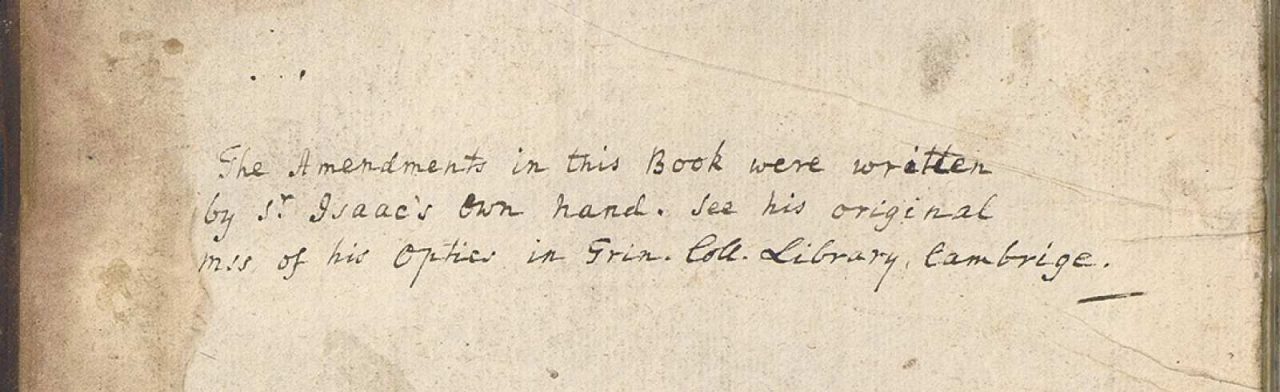 The Amendments in this Book were written
by Sr Isaac's own hand. See his original
mss of his Optics in Trin. Coll. Library, Cambrige.